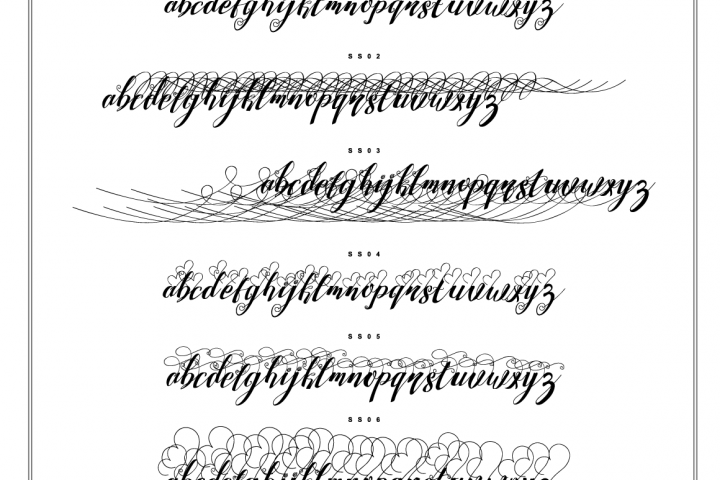 abcdefghijklmnopqrstuvwxyz
SS02
abcdefghijklmnopqrstuvwxyz
SS03
abcdefghijklmnopqrstuvwxyz
SS04
abcdefghijklmnopqrstuvwxyz
SS05
abcdefghijklmnopqrstuvwxyz
SS06